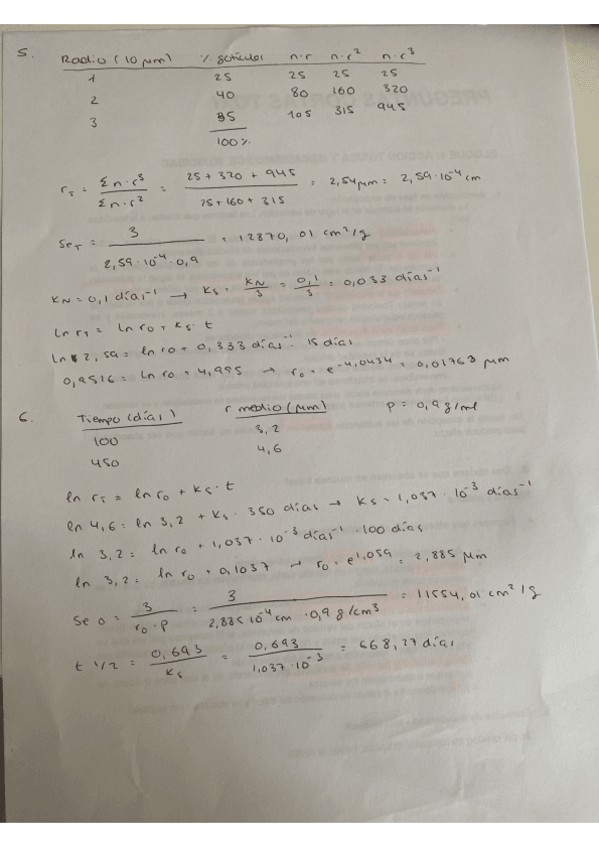 5.
Radio (10 μm) % gotículas n·r n·r² n·r³
1 25 25 25 25
2 40 80 160 320
3 35 105 315 945
100%
rT = Σn·r³ / Σn·r² = 25 + 320 + 945 / 25 + 160 + 315 = 2,54μm = 2,59·10⁻⁴ cm
SeT = 3 / 2,59·10⁻⁴·0,9 = 12870,01 cm²/g
KN = 0,1 días⁻¹ → Ks = KN/3 = 0,1/3 = 0,033 días⁻¹
ln rT = ln r0 + Ks·t
ln 2,59 = ln r0 + 0,333 días⁻¹· 15 días
0,9516 = ln r0 + 4,995 → r0 = e^-4,0434 = 0,01763 μm
6.
Tiempo (días) r medio (μm) p = 0,9 g/ml
100 3,2
450 4,6
ln rT = ln r0 + Ks·t
ln 4,6 = ln 3,2 + Ks· 350 días → Ks = 1,037·10⁻³ días⁻¹
ln 3,2 = ln r0 + 1,037·10⁻³ días⁻¹·100 días
ln 3,2 = ln r0 + 0,1037 → r0 = e^1,059 = 2,885 μm
Se 0 = 3 / r0·p = 3 / 2,885·10⁻⁴cm·0,9 g/cm3 = 11554,01 cm²/g
t 1/2 = 0,693 / Ks = 0,693 / 1,037·10⁻³ = 668,27 días